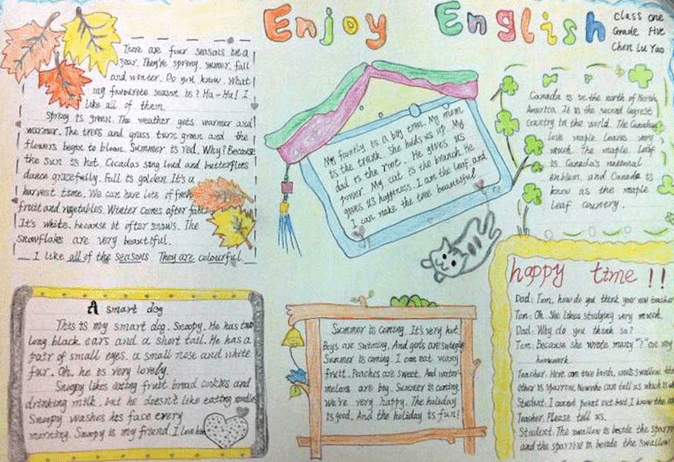 Enjoy English
Class one
Grade Five
Chen Lu Yao
There are four seasons in a
year. They're spring, summer, fall
and winter. Do you know. What
my favourite season is? Ha-Ha! I
like all of them.
Spring is green. The weather gets warmer and
warmer. The trees and grass turns green and the
flowers begin to bloom. Summer is red. Why? Because
the sun is hot. Cicadas sing loud and butterflies
dance gracefully. Fall is golden. It's a
harvest time. We can have lots of fresh
fruit and vegetables. Winter comes after fall.
It's white. because it often snows. The
snowflakes are very beautiful.
I like all of the seasons They are colourful.
My family is a big tree. My mum
is the trunk. She holds us up. My
dad is the root. He gives us
power. My cat is the branch. He
gives us happiness. I am the leaf and
I can make the tree beautiful.
Canada is in the north of North
America. It is the second largest
country in the world. The Canadians
love maple leaves very
much. The maple leaf
is Canada's national
emblem, and Canada is
know as the maple
leaf country.
A smart dog
This is my smart dog. Snoopy. He has two
long black ears and a short tail. He has a
pair of small eyes. a small nose and white
fur. Oh. he is very lovely.
Snoopy likes eating fruit bread cookies and
drinking milk. but he doesn't like eating noodles
Snoopy washes his face every
morning. Snoopy is my friend. I love him
Summer is coming. It's very hot.
Boys are swimming. And girls are
Summer is coming. I can eat many
fruit. Peaches are sweet. And water-
melons are big. Summer is coming
we're very happy. The holiday
is good. And the holiday is fun!
happy time !!
Dad: Tom, how do you think your new teacher
Tom: Oh. She likes studying very much.
Dad: Why do you think so?
Tom: Because she wrote many "?" on my
homework.
Teacher: Here are two birds, one's swallow. the
other is sparrow. Now who can tell us which is wh
Student: I cannot point out but I know the an
Teacher: Please tell us.
Student: The swallow is beside the sparr
and the sparrow is beside the swallow.